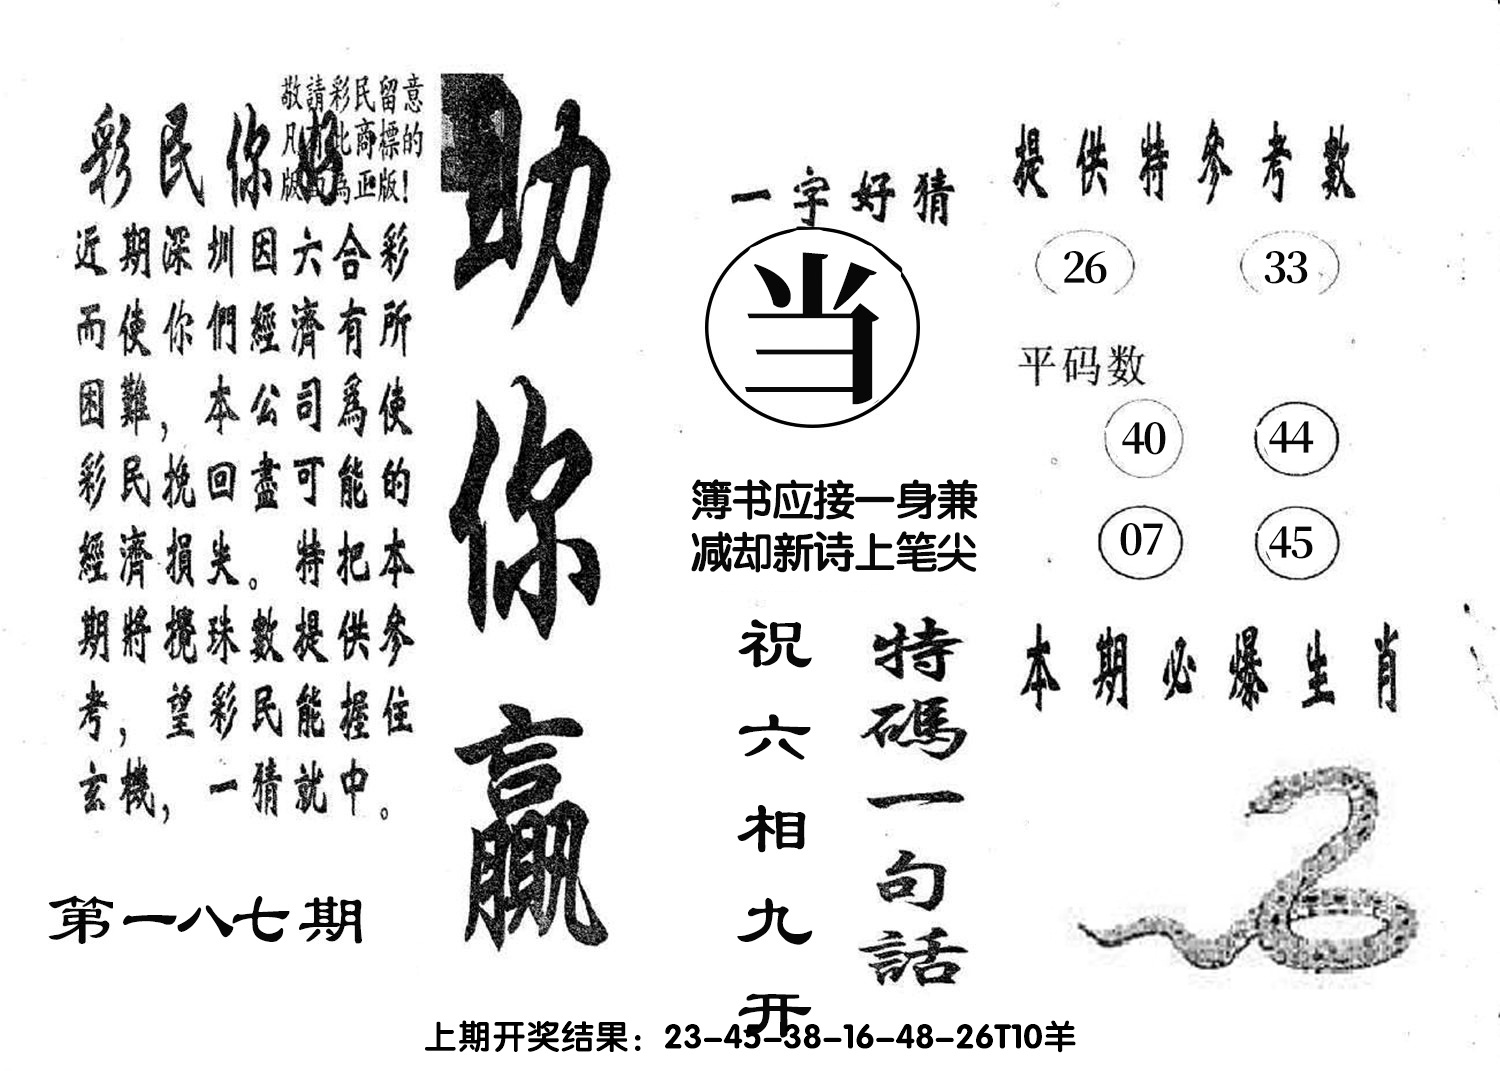 敬請彩民留意
凡有此商標的
版面為正版!
彩民你好
近期深圳因六合彩
而使你們經濟有所
困難，本公司爲使
彩民挽回盡可能的
經濟損失。特把本
期將攪珠數提供參
考，望彩民能握住
玄機，一猜就中。
第一八七期
助你贏
一字好猜
当
簿书应接一身兼
减却新诗上笔尖
特碼一句話
祝六相九开
提供特參考數
26 33
平码数
40 44
07 45
本期必爆生肖
上期开奖结果：23-45-38-16-48-26T10羊